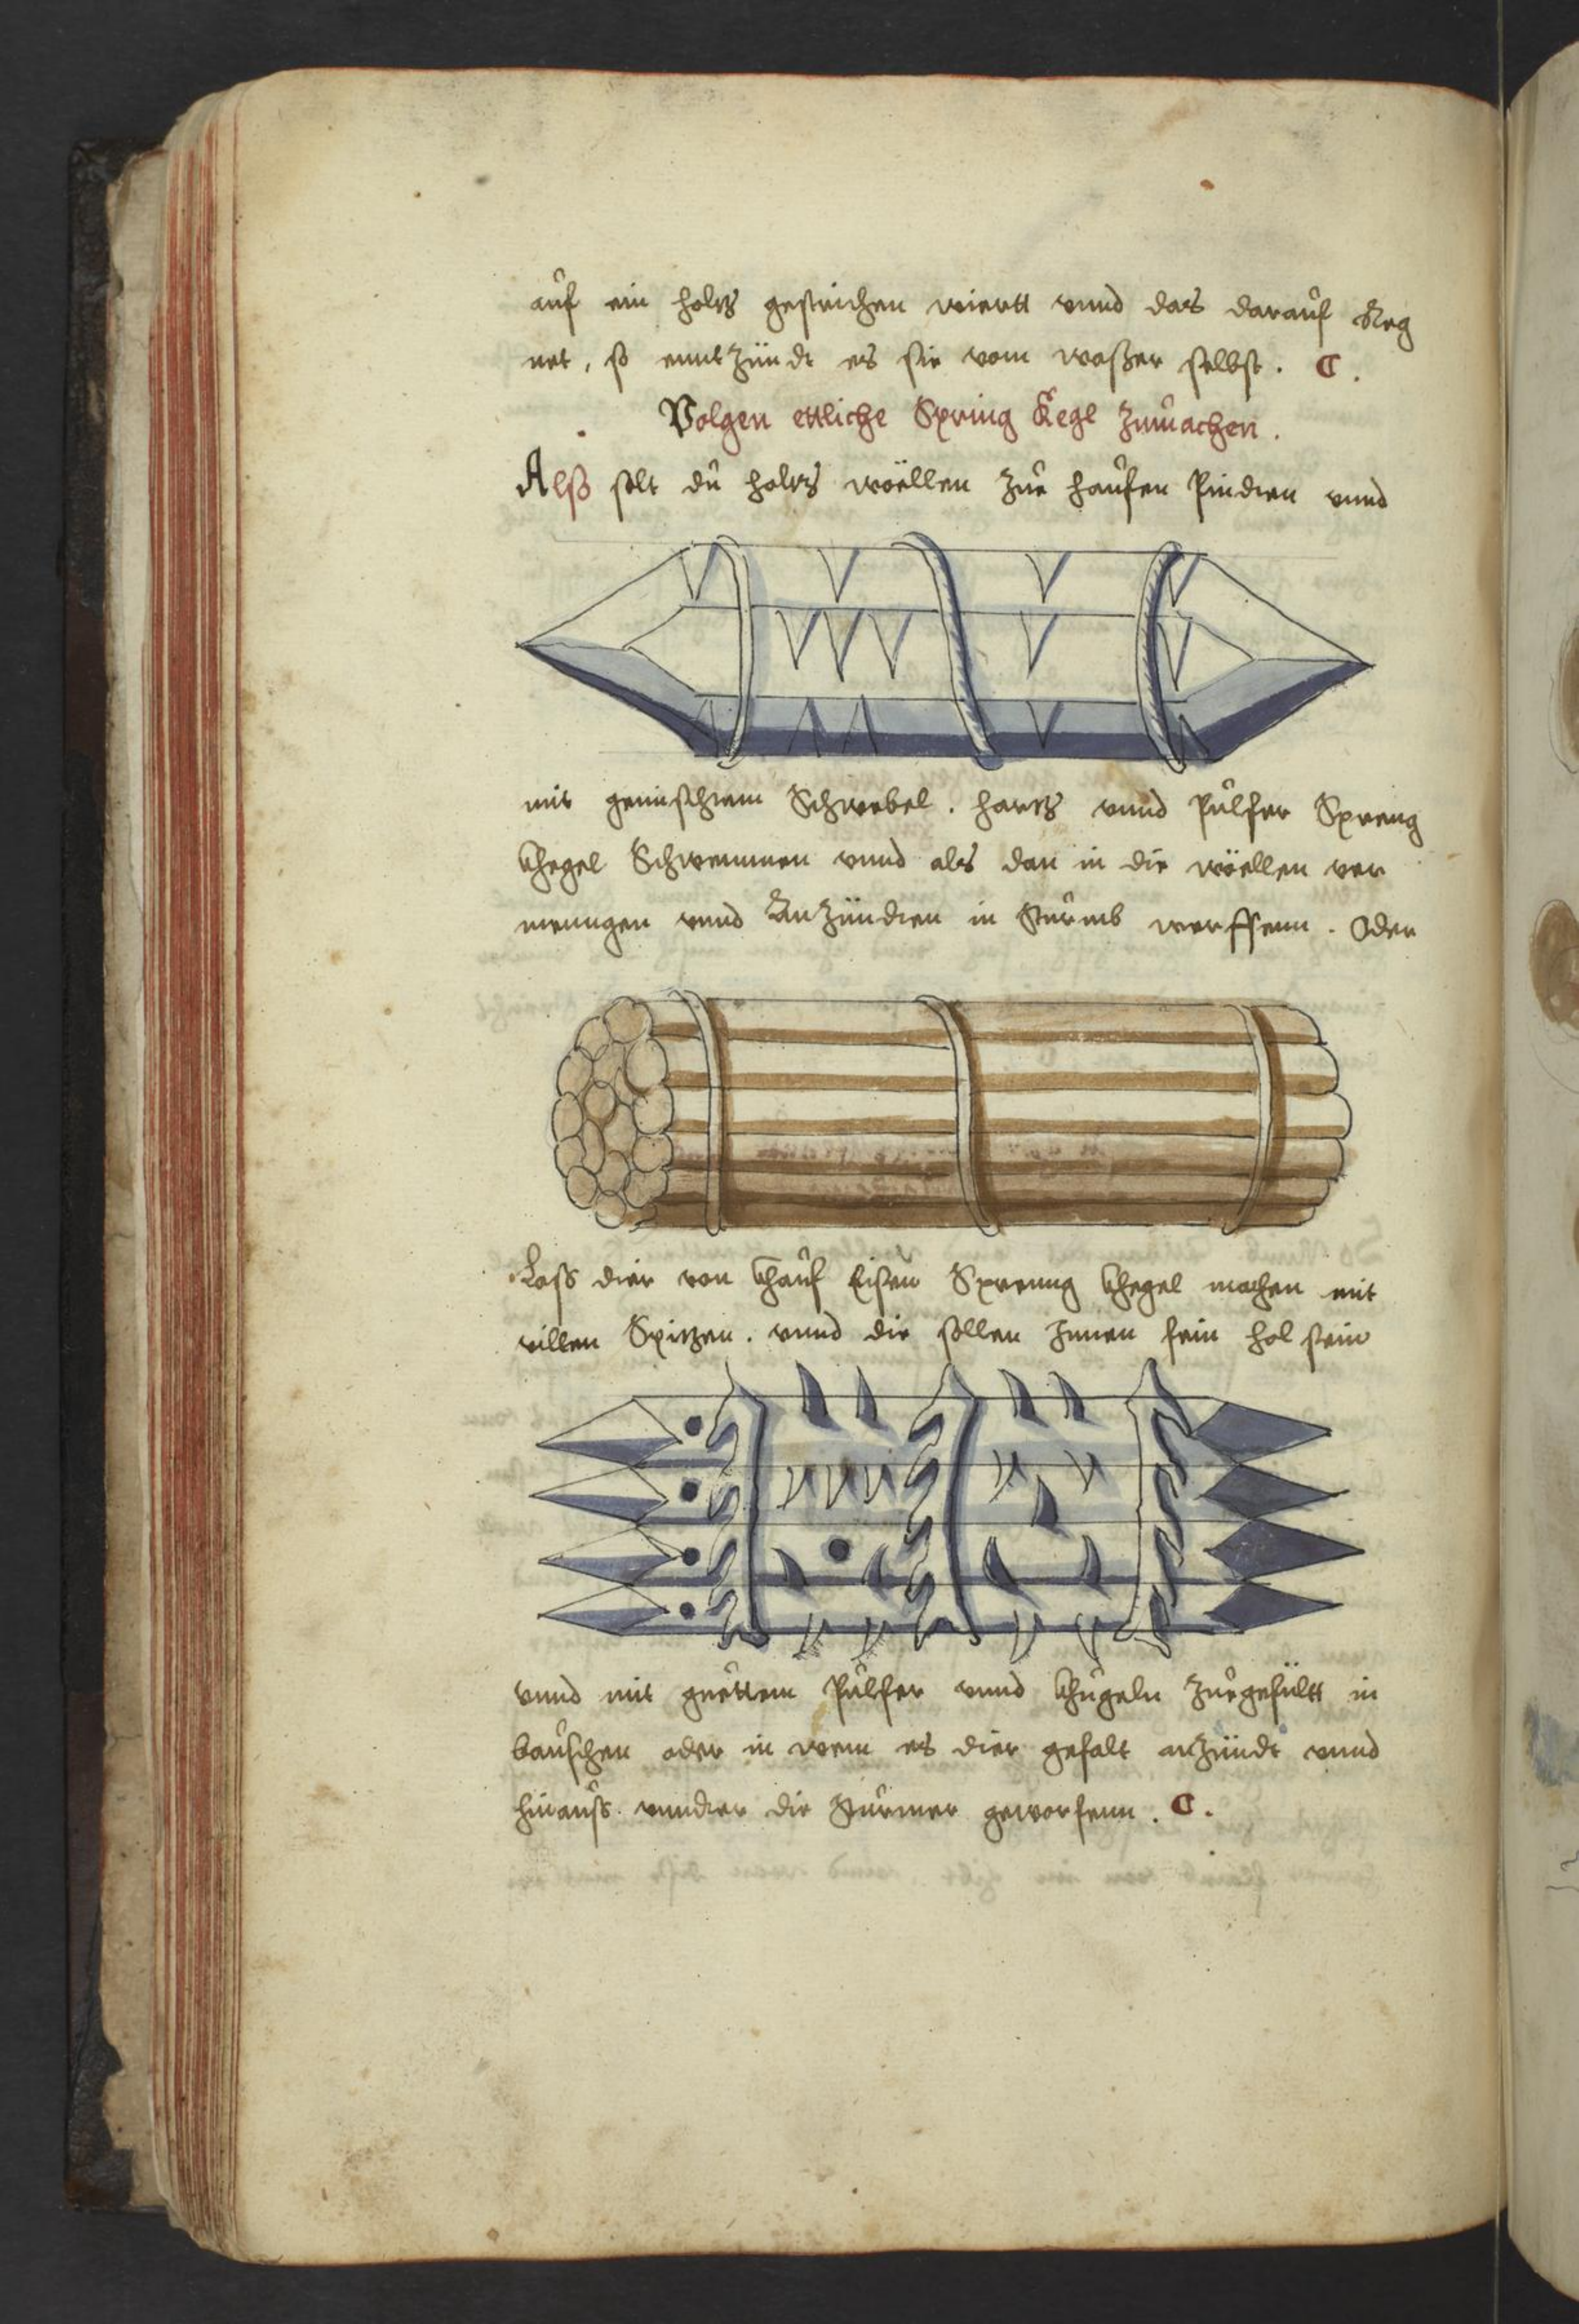 auf ein holtz gestrichen wiertt vnnd das darauf Reg
net, so enntzündt es sie vom waßer selbst. C.
Volgen ettliche Spring Kegl zumachen.
Alß solt du holtz wöellen zue haufen Pindten vnnd
mit gemischtem Schwebel. hartz vnnd Pulfer Spreng
khegel Schwemmen vnnd als dan in die wöellen ver
menngen vnnd Anzündten in Sturmb werffenn. Oder
Lass dier von khauf Eisen Sprenng khegel machen mit
villen Spitzen. vnnd die sollen Innen fein hol sein
vnnd mit guettem Pulfer vnnd khugeln zuegefültt in
bauschen oder in wem es dier gefalt anzündt vnnd
hinauss vnndter die Sturmer geworfenn. C.